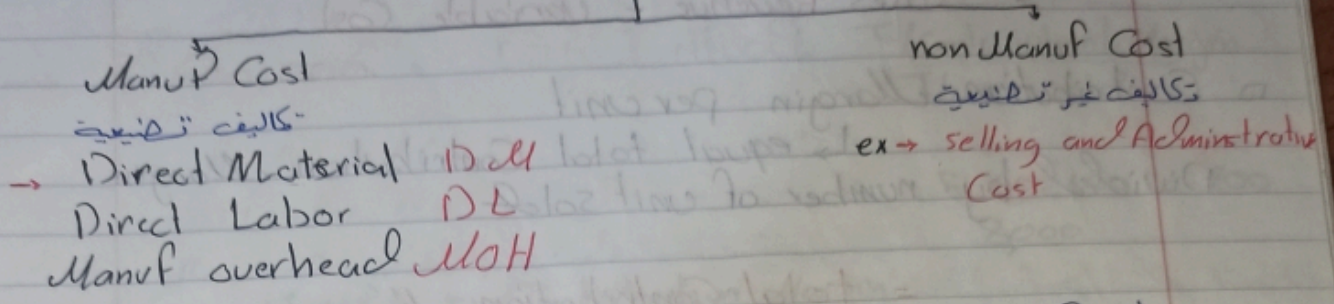 Manuf Cost
تكاليف تصنيعية
→ Direct Material DM
Direct Labor DL
Manuf overhead MOH
non Manuf Cost
تكاليف غير تصنيعية
ex → selling and Adminstrative
Cost